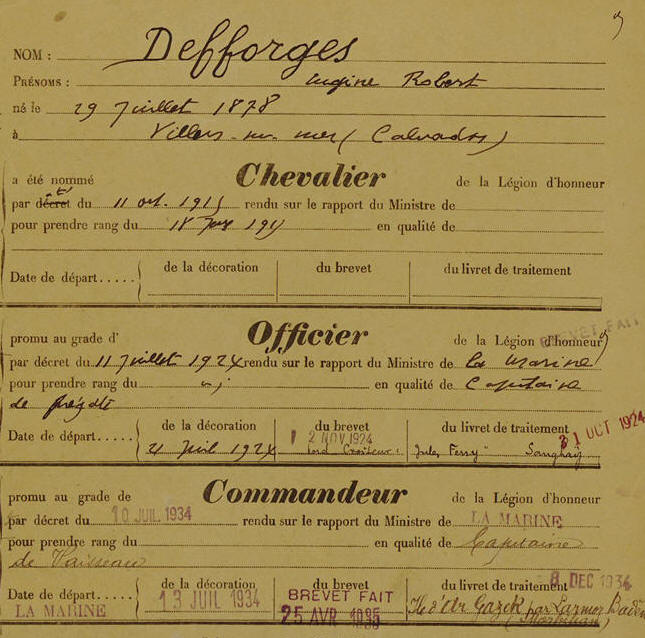 NOM : Defforges
PRÉNOMS : Eugène Robert
né le 29 Juillet 1878
à Villers-sur-mer (Calvados)
a été nommé Chevalier de la Légion d'honneur
par décret du 11 oct. 1915 rendu sur le rapport du Ministre de
pour prendre rang du 18 en qualité de
Date de départ..... de la décoration du brevet du livret de traitement
BREVET FAIT
promu au grade d' Officier de la Légion d'honneur
par décret du 11 Juillet 1924 rendu sur le rapport du Ministre de la Marine
pour prendre rang du en qualité de Capitaine
de frégate
Date de départ..... de la décoration du brevet du livret de traitement
21 Juil 1924 12 NOV 1924 31 OCT 1924
"Jules Ferry"
promu au grade de Commandeur de la Légion d'honneur
par décret du 10 JUIL 1934 rendu sur le rapport du Ministre de LA MARINE
pour prendre rang du en qualité de Capitaine
de Vaisseau
Date de départ..... de la décoration du brevet du livret de traitement
LA MARINE 13 JUIL 1934 BREVET FAIT 8 DEC 1934
25 AVR 1935 par Larmor Baden
(Morbihan)